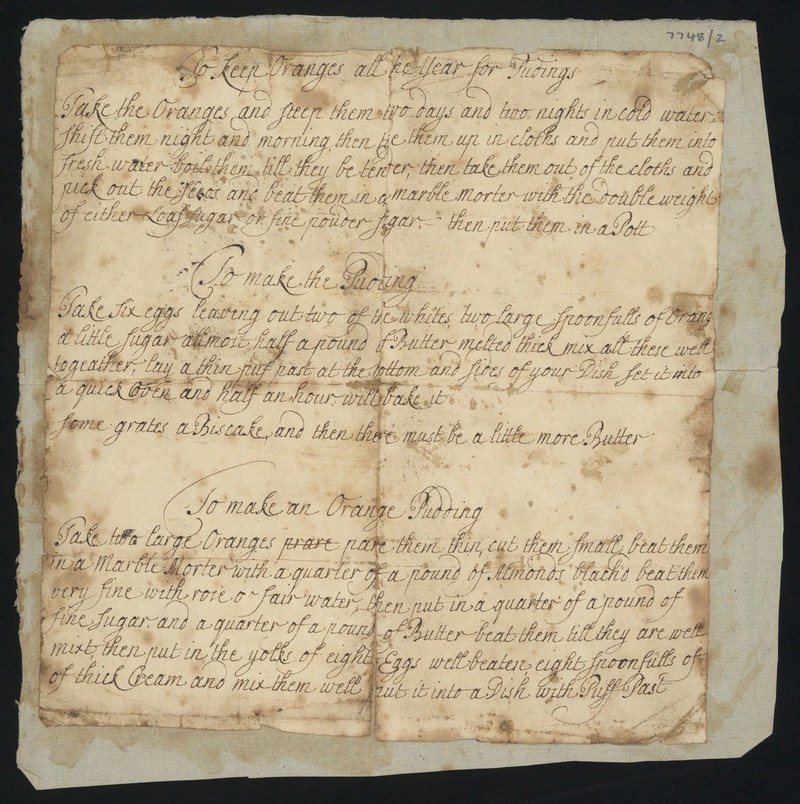 7748/2
To keep Oranges all the Year for Pudings
Take the Oranges and steep them two days and two nights in cold water,
shift them night and morning, then tie them up in cloths and put them into
fresh water boil them till they be tender, then take them out of the cloths and
pick out the seeds and beat them in a marble morter with the double weight
of either Loaf sugar or fine pouder sugar. then put them in a Pott
To make the Puding
Take six eggs leaving out two of the whites, two large spoonfulls of Orang
a little sugar allmost half a pound of Butter melted thick mix all these well
togeather, lay a thin puf past at the bottom and sides of your Dish set it into
a quick Oven and half an hour will bake it
some grates a Biscake, and then there must be a little more Butter
To make an Orange Pudding
Take two large Oranges prare pare them thin, cut them small, beat them
in a Marble Morter with a quarter of a pound of Almonds blach'd beat them
very fine with rose or fair water, then put in a quarter of a pound of
fine sugar, and a quarter of a pound of Butter beat them till they are well
mixt, then put in the yolks of eight Eggs well beaten eight spoonfulls of
of thick Cream and mix them well put it into a Dish with Puff Past